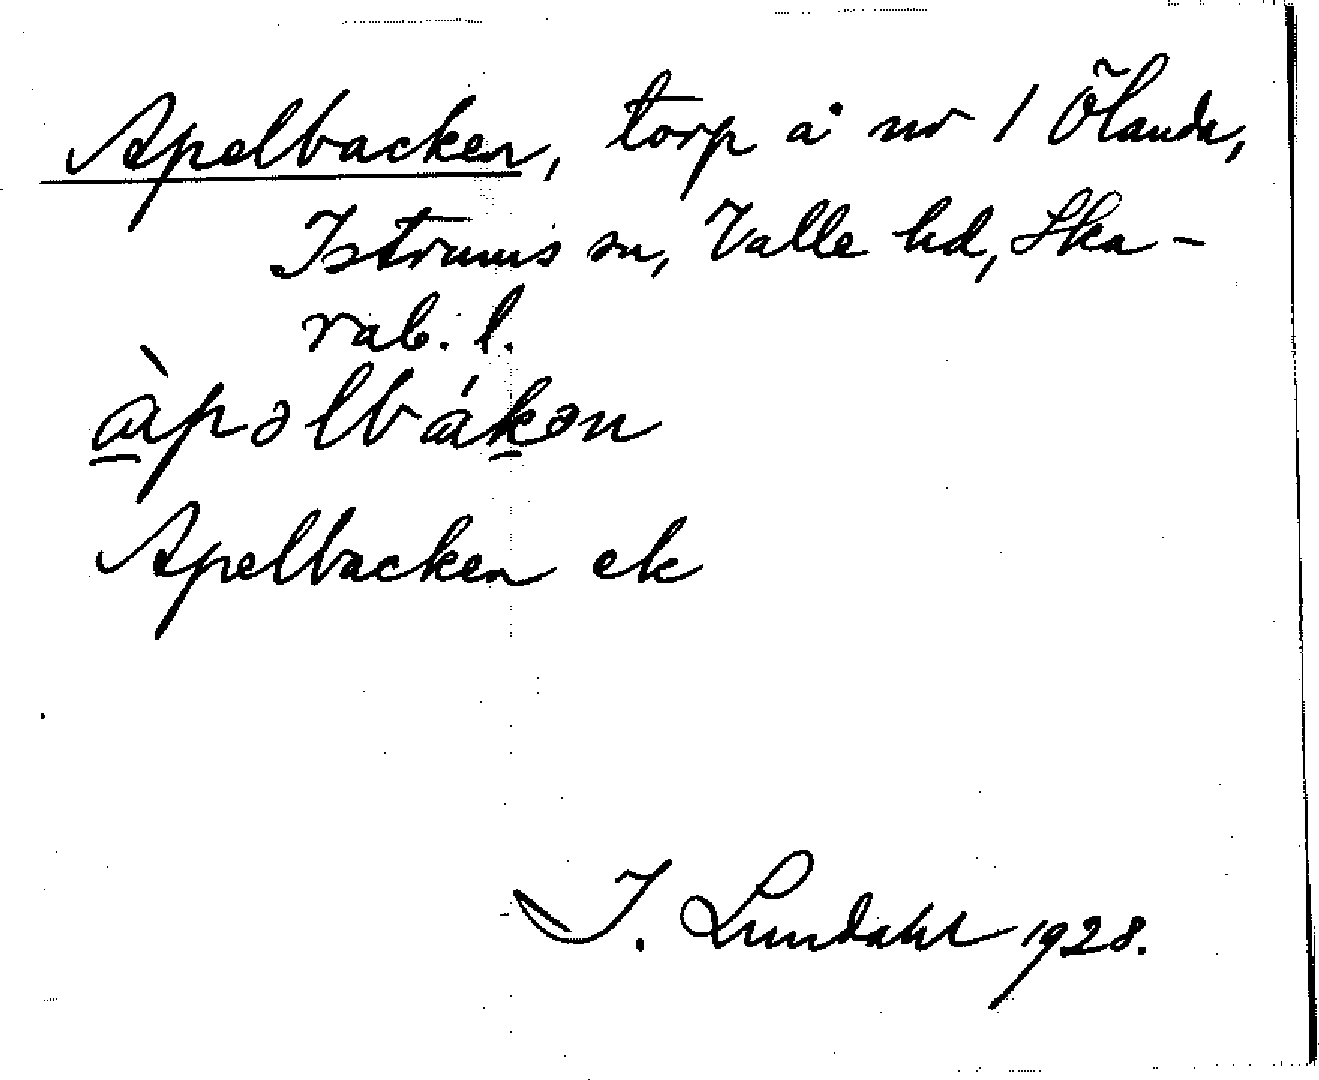 Apelbacken, torp å nr 1 Ölända,
Istrums sn, Valle hd, Ska-
rab. l.
àpəlbákən
Apelbacken ek
I. Lundahl 1928.